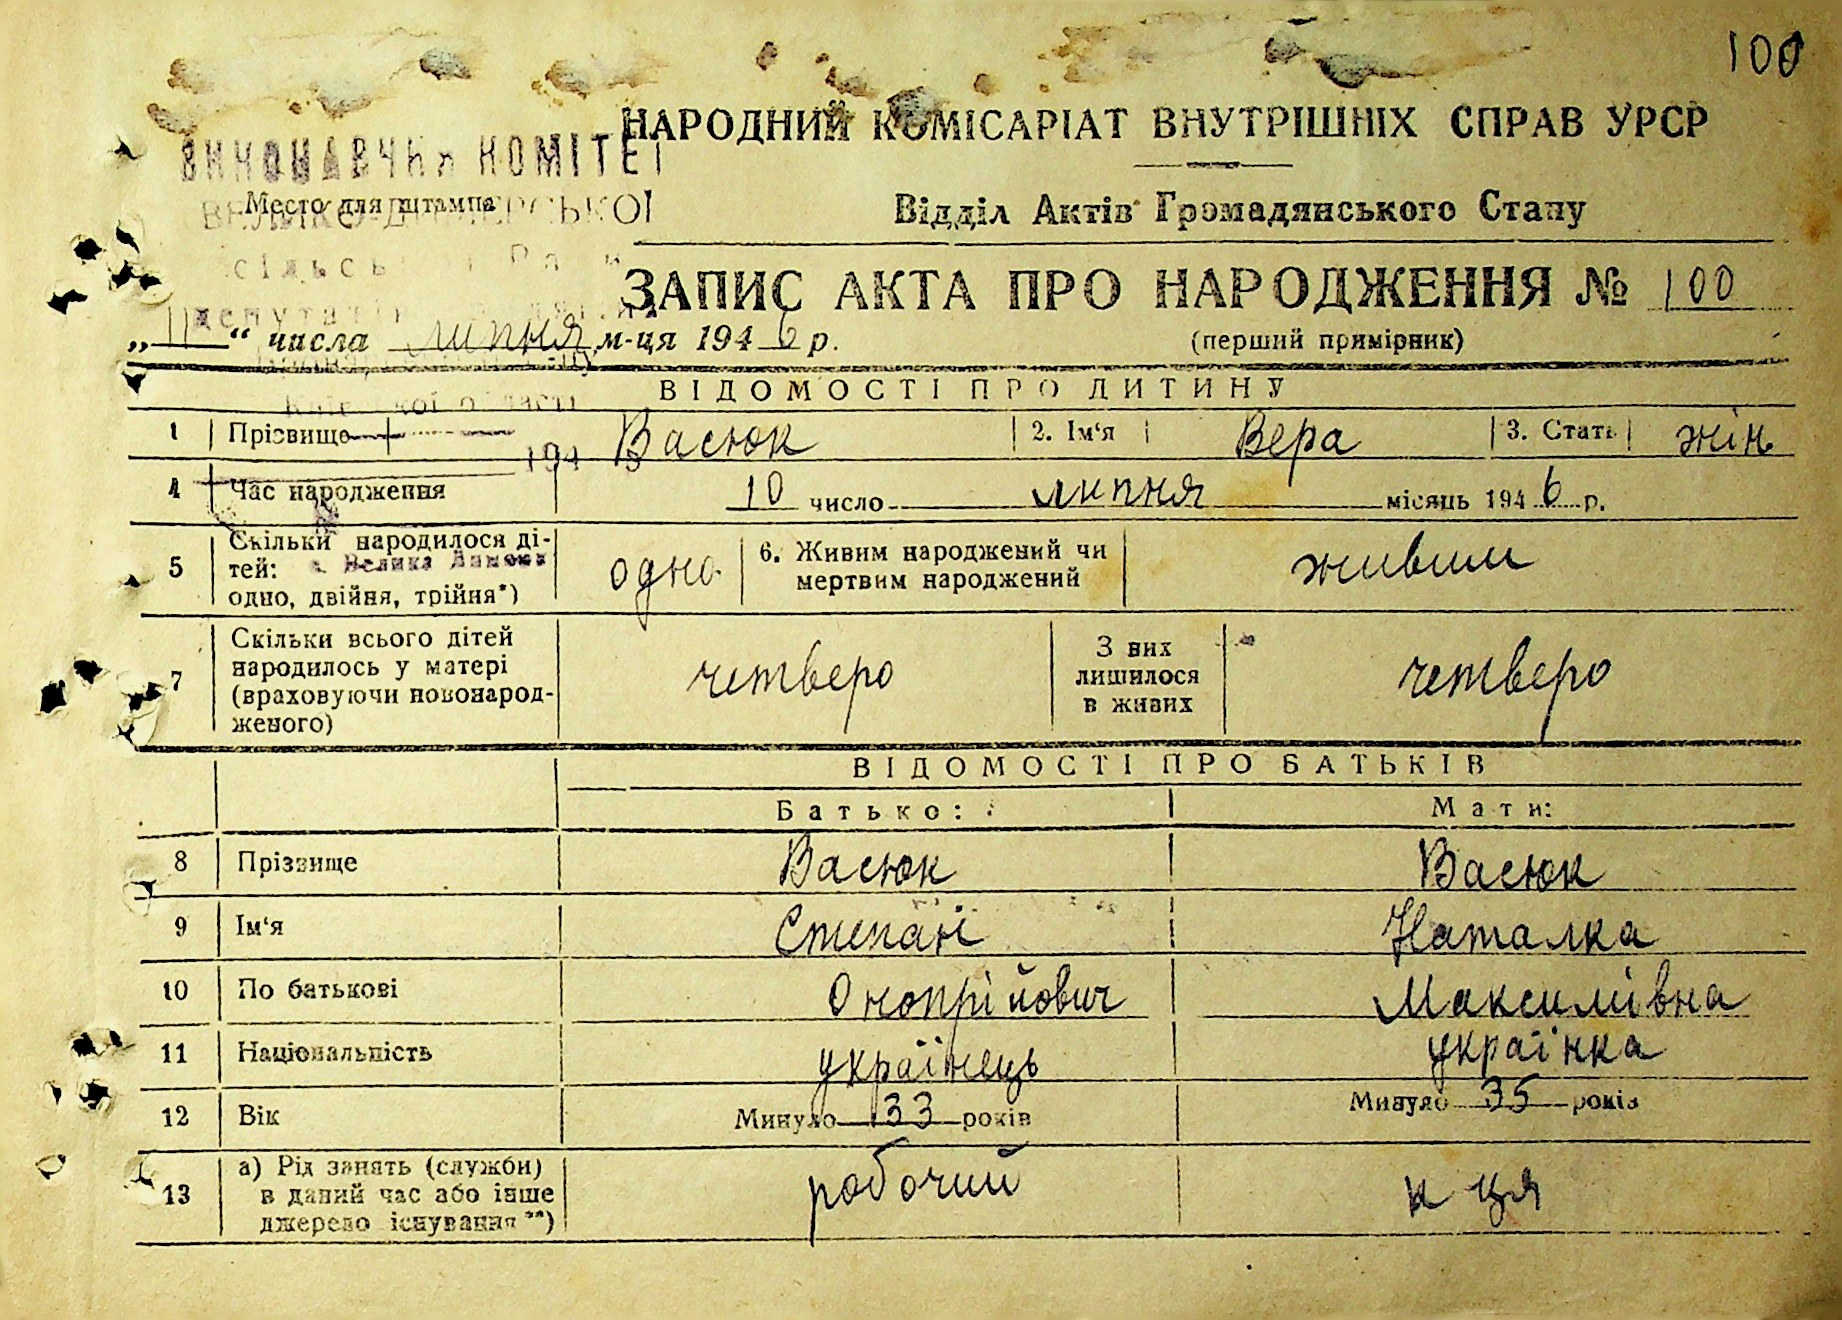 100
НАРОДНИЙ КОМІСАРІАТ ВНУТРІШНІХ СПРАВ УРСР
ВИКОНАВЧИЙ КОМІТЕТ
Место для штампа
Відділ Актів Громадянського Стану
ЗАПИС АКТА ПРО НАРОДЖЕННЯ № 100
„11“ числа липня м-ця 1946 р.
(перший примірник)
ВІДОМОСТІ ПРО ДИТИНУ
1 Прізвище Васюк 2. Ім'я Вера 3. Стать жін
194
4 Час народження 10 число липня місяць 1946 р.
5 Скільки народилося дітей: одно, двійня, трійня*) одно 6. Живим народжений чи мертвим народжений живим
7 Скільки всього дітей народилось у матері (враховуючи новонародженого) четверо З них лишилося в живих четверо
ВІДОМОСТІ ПРО БАТЬКІВ
Батько: Мати:
8 Прізвище Васюк Васюк
9 Ім'я Степан Наталка
10 По батькові Онопрійович Максимівна
11 Національність українець українка
12 Вік Минуло 33 років Минуло 35 років
13 а) Рід занять (служби) в даний час або інше джерело існування**) робочий к ця